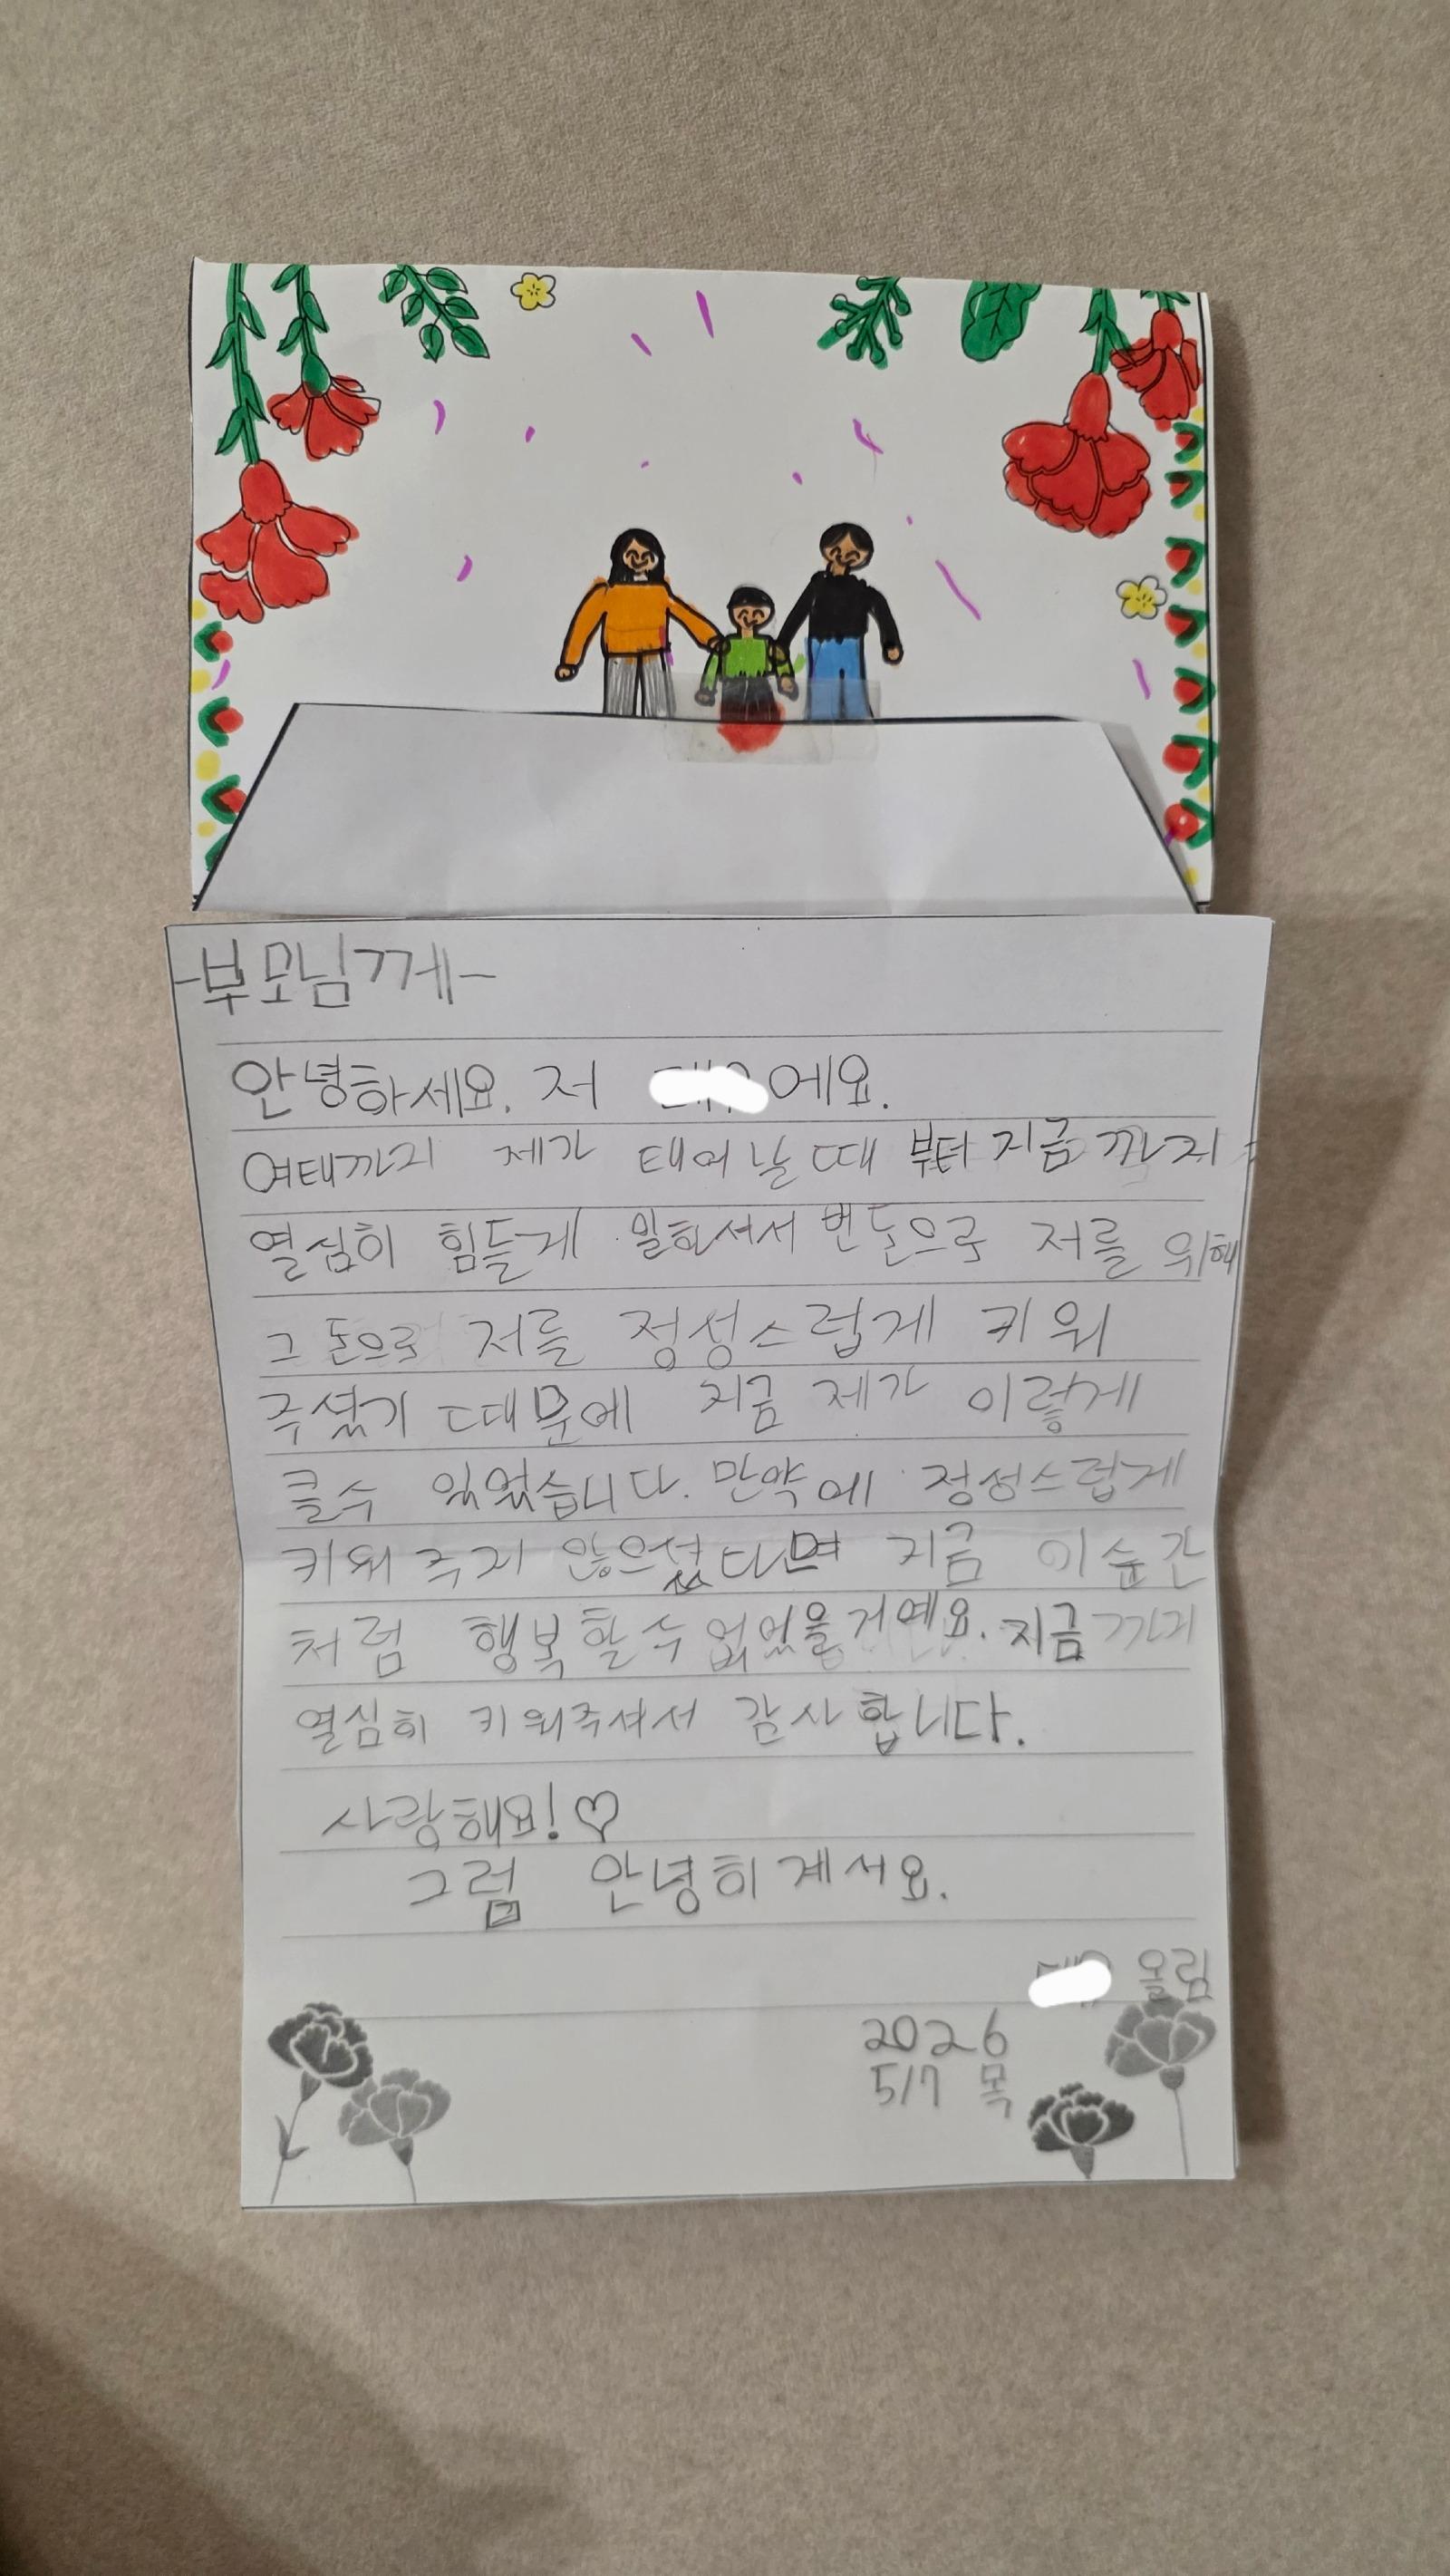 -부모님께-
안녕하세요. 저 에요.
여태까지 제가 태어날때 부터 지금까지
열심히 힘들게 일하셔서 번돈으로 저를 위해
그 돈으로 저를 정성스럽게 키워
주셨기 때문에 지금 제가 이렇게
클수 있었습니다. 만약에 정성스럽게
키워주지 않으셨다면 지금 이순간
처럼 행복할수없었을거예요. 지금까지
열심히 키워주셔서 감사합니다.
사랑해요!♡
그럼 안녕히계서요.
올림
2026
5/7 목